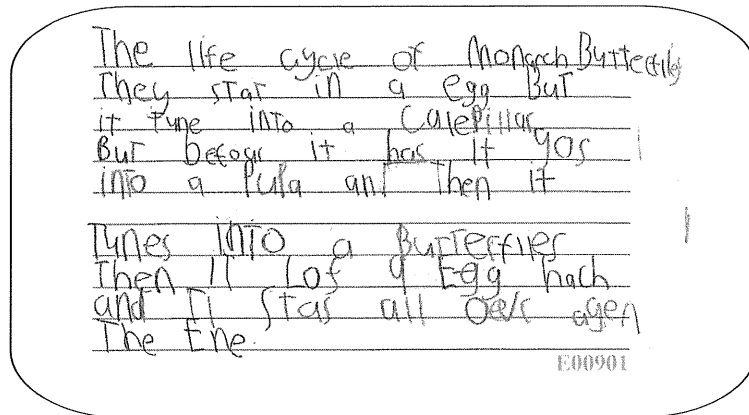 The life cycle of Monarch Butterflies
They star in a egg But
it tune into a Calepillar
But becoar it has it gos
into a Pupa and Then it
Tunes INTO a Butterflies
Then it Lof a Egg hach
and IT Stas all over agen
The Ene.
E00901